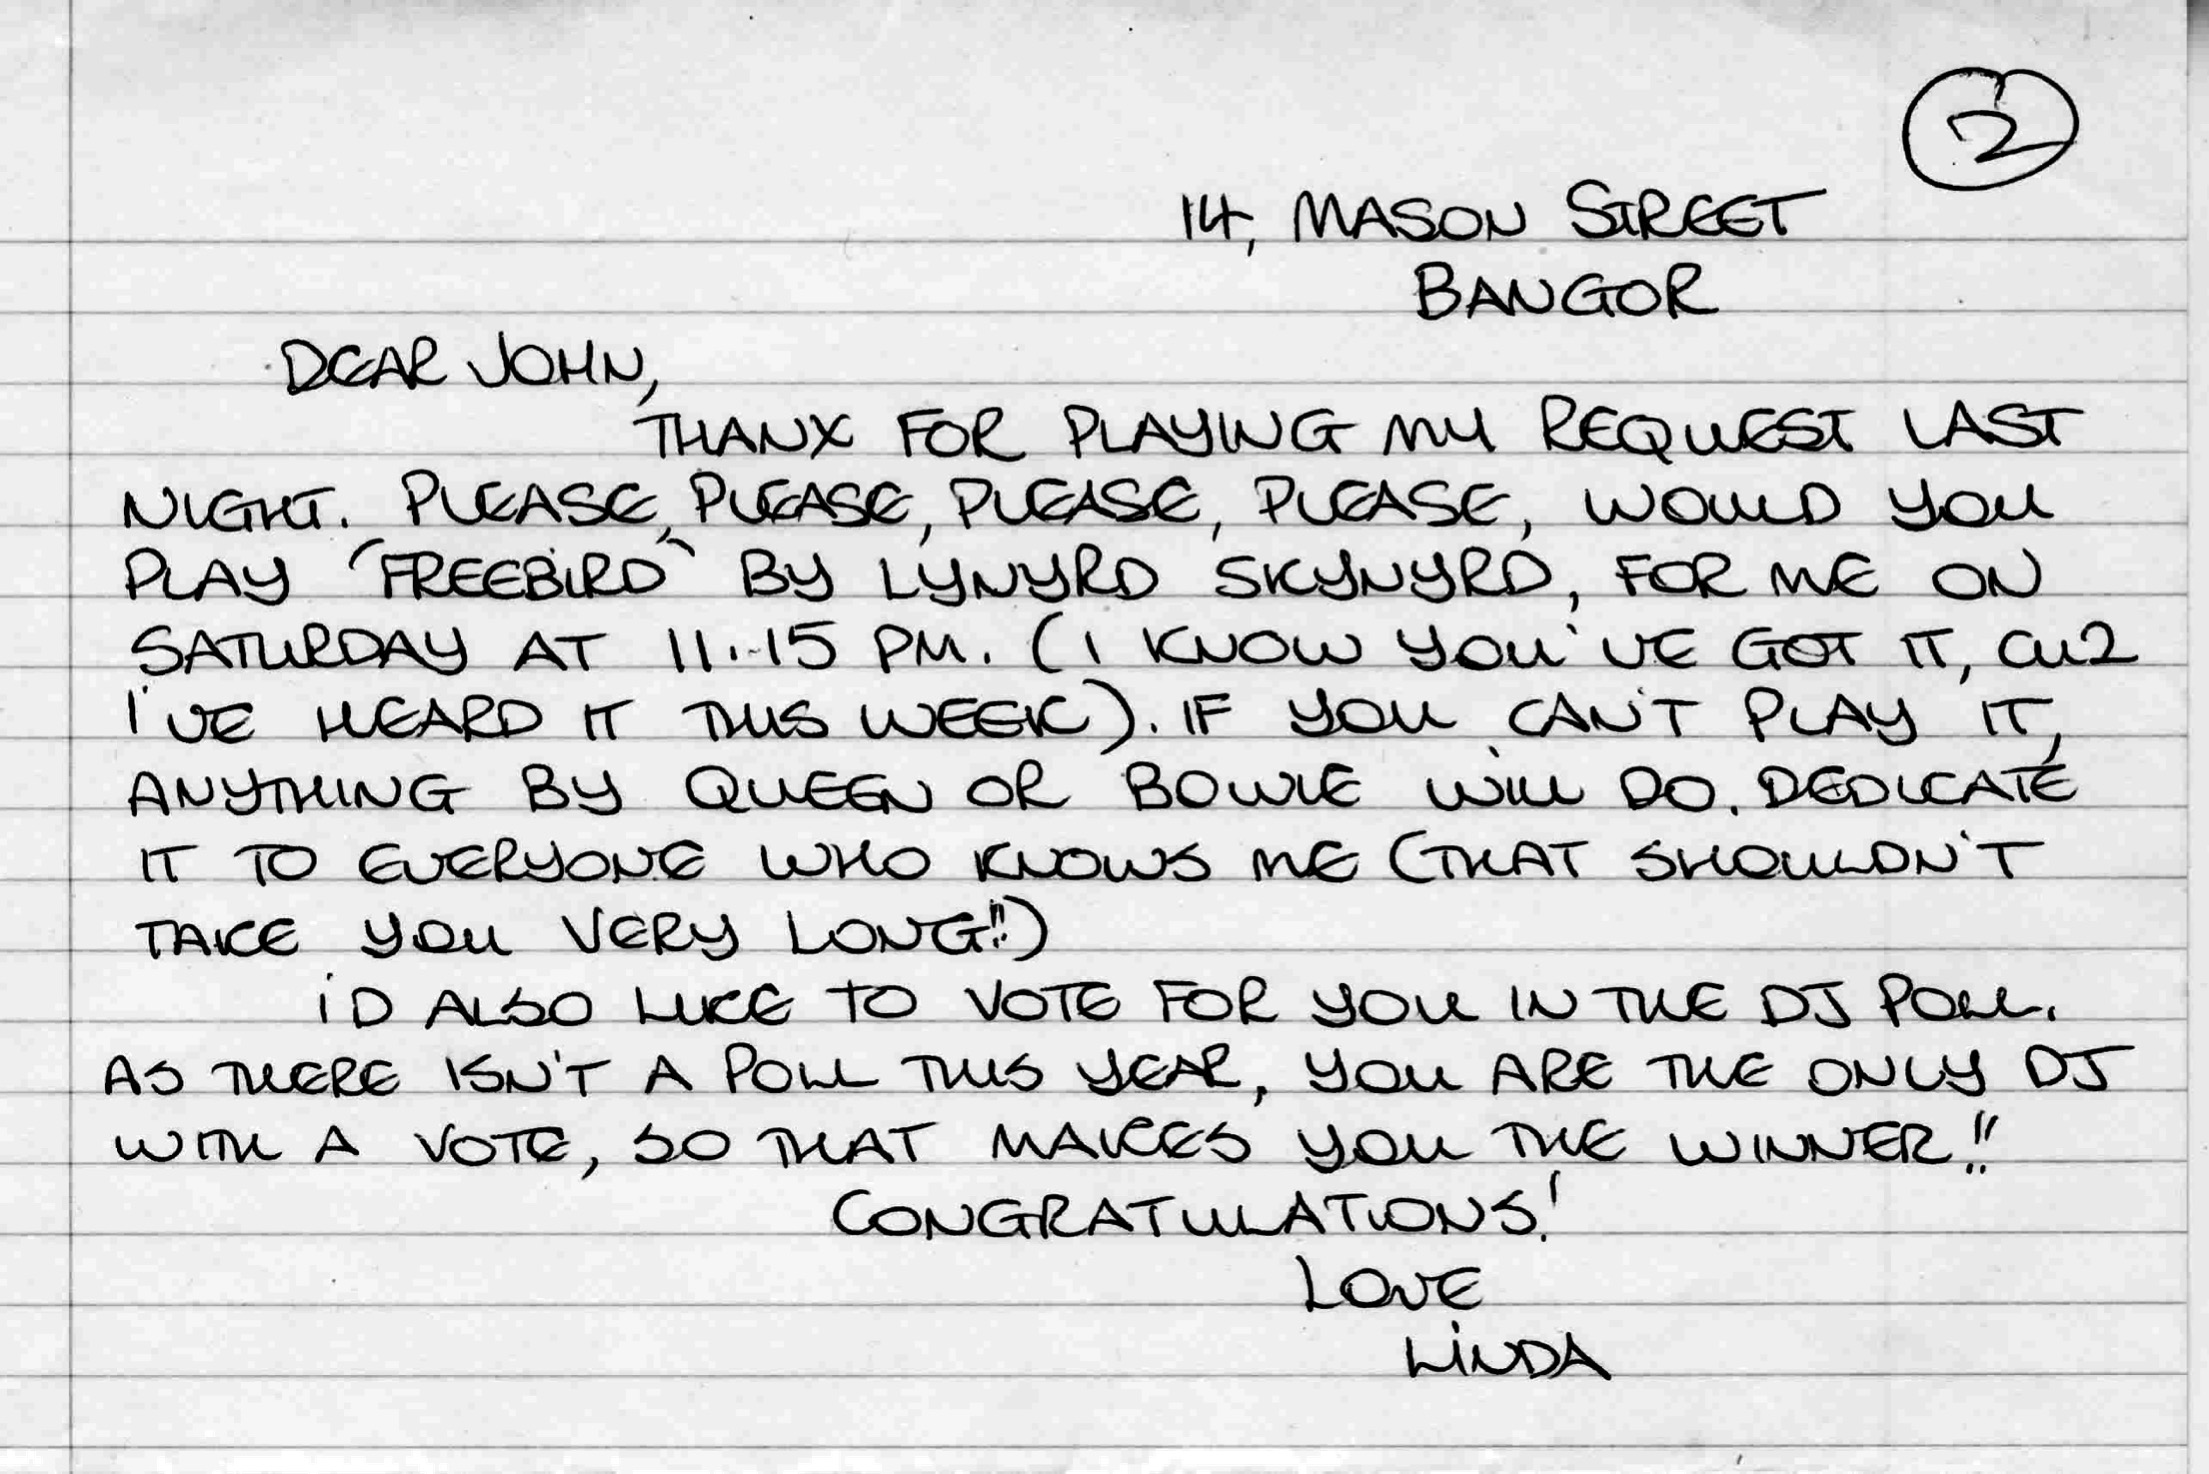 2
14, MASON STREET
BANGOR
DEAR JOHN,
THANX FOR PLAYING MY REQUEST LAST
NIGHT. PLEASE, PLEASE, PLEASE, PLEASE, WOULD YOU
PLAY 'FREEBIRD' BY LYNYRD SKYNYRD, FOR ME ON
SATURDAY AT 11.15 PM. (I KNOW YOU'VE GOT IT, CUZ
I'VE HEARD IT THIS WEEK). IF YOU CAN'T PLAY IT,
ANYTHING BY QUEEN OR BOWIE WILL DO. DEDICATE
IT TO EVERYONE WHO KNOWS ME (THAT SHOULDN'T
TAKE YOU VERY LONG!!)
I'D ALSO LIKE TO VOTE FOR YOU IN THE DJ POLL.
AS THERE ISN'T A POLL THIS YEAR, YOU ARE THE ONLY DJ
WITH A VOTE, SO THAT MAKES YOU THE WINNER!!
CONGRATULATIONS!
LOVE
LINDA